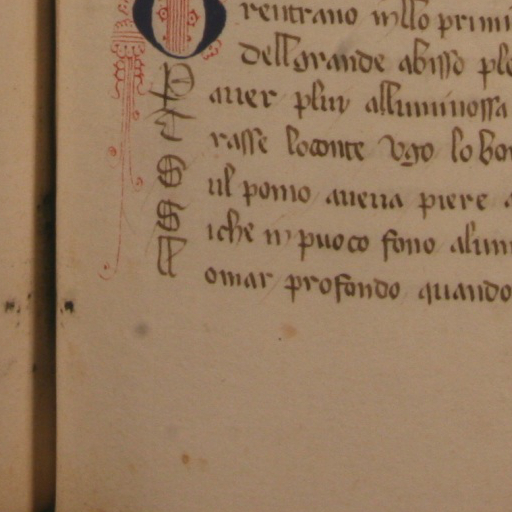 O rentrano inllo primi
dell grande abisso ple
P auer plui alluminossa
E rasse loconte vgo lo bon
S ul pomo aueua piere a
S iche in puoco fono alum
E l mar profondo quando